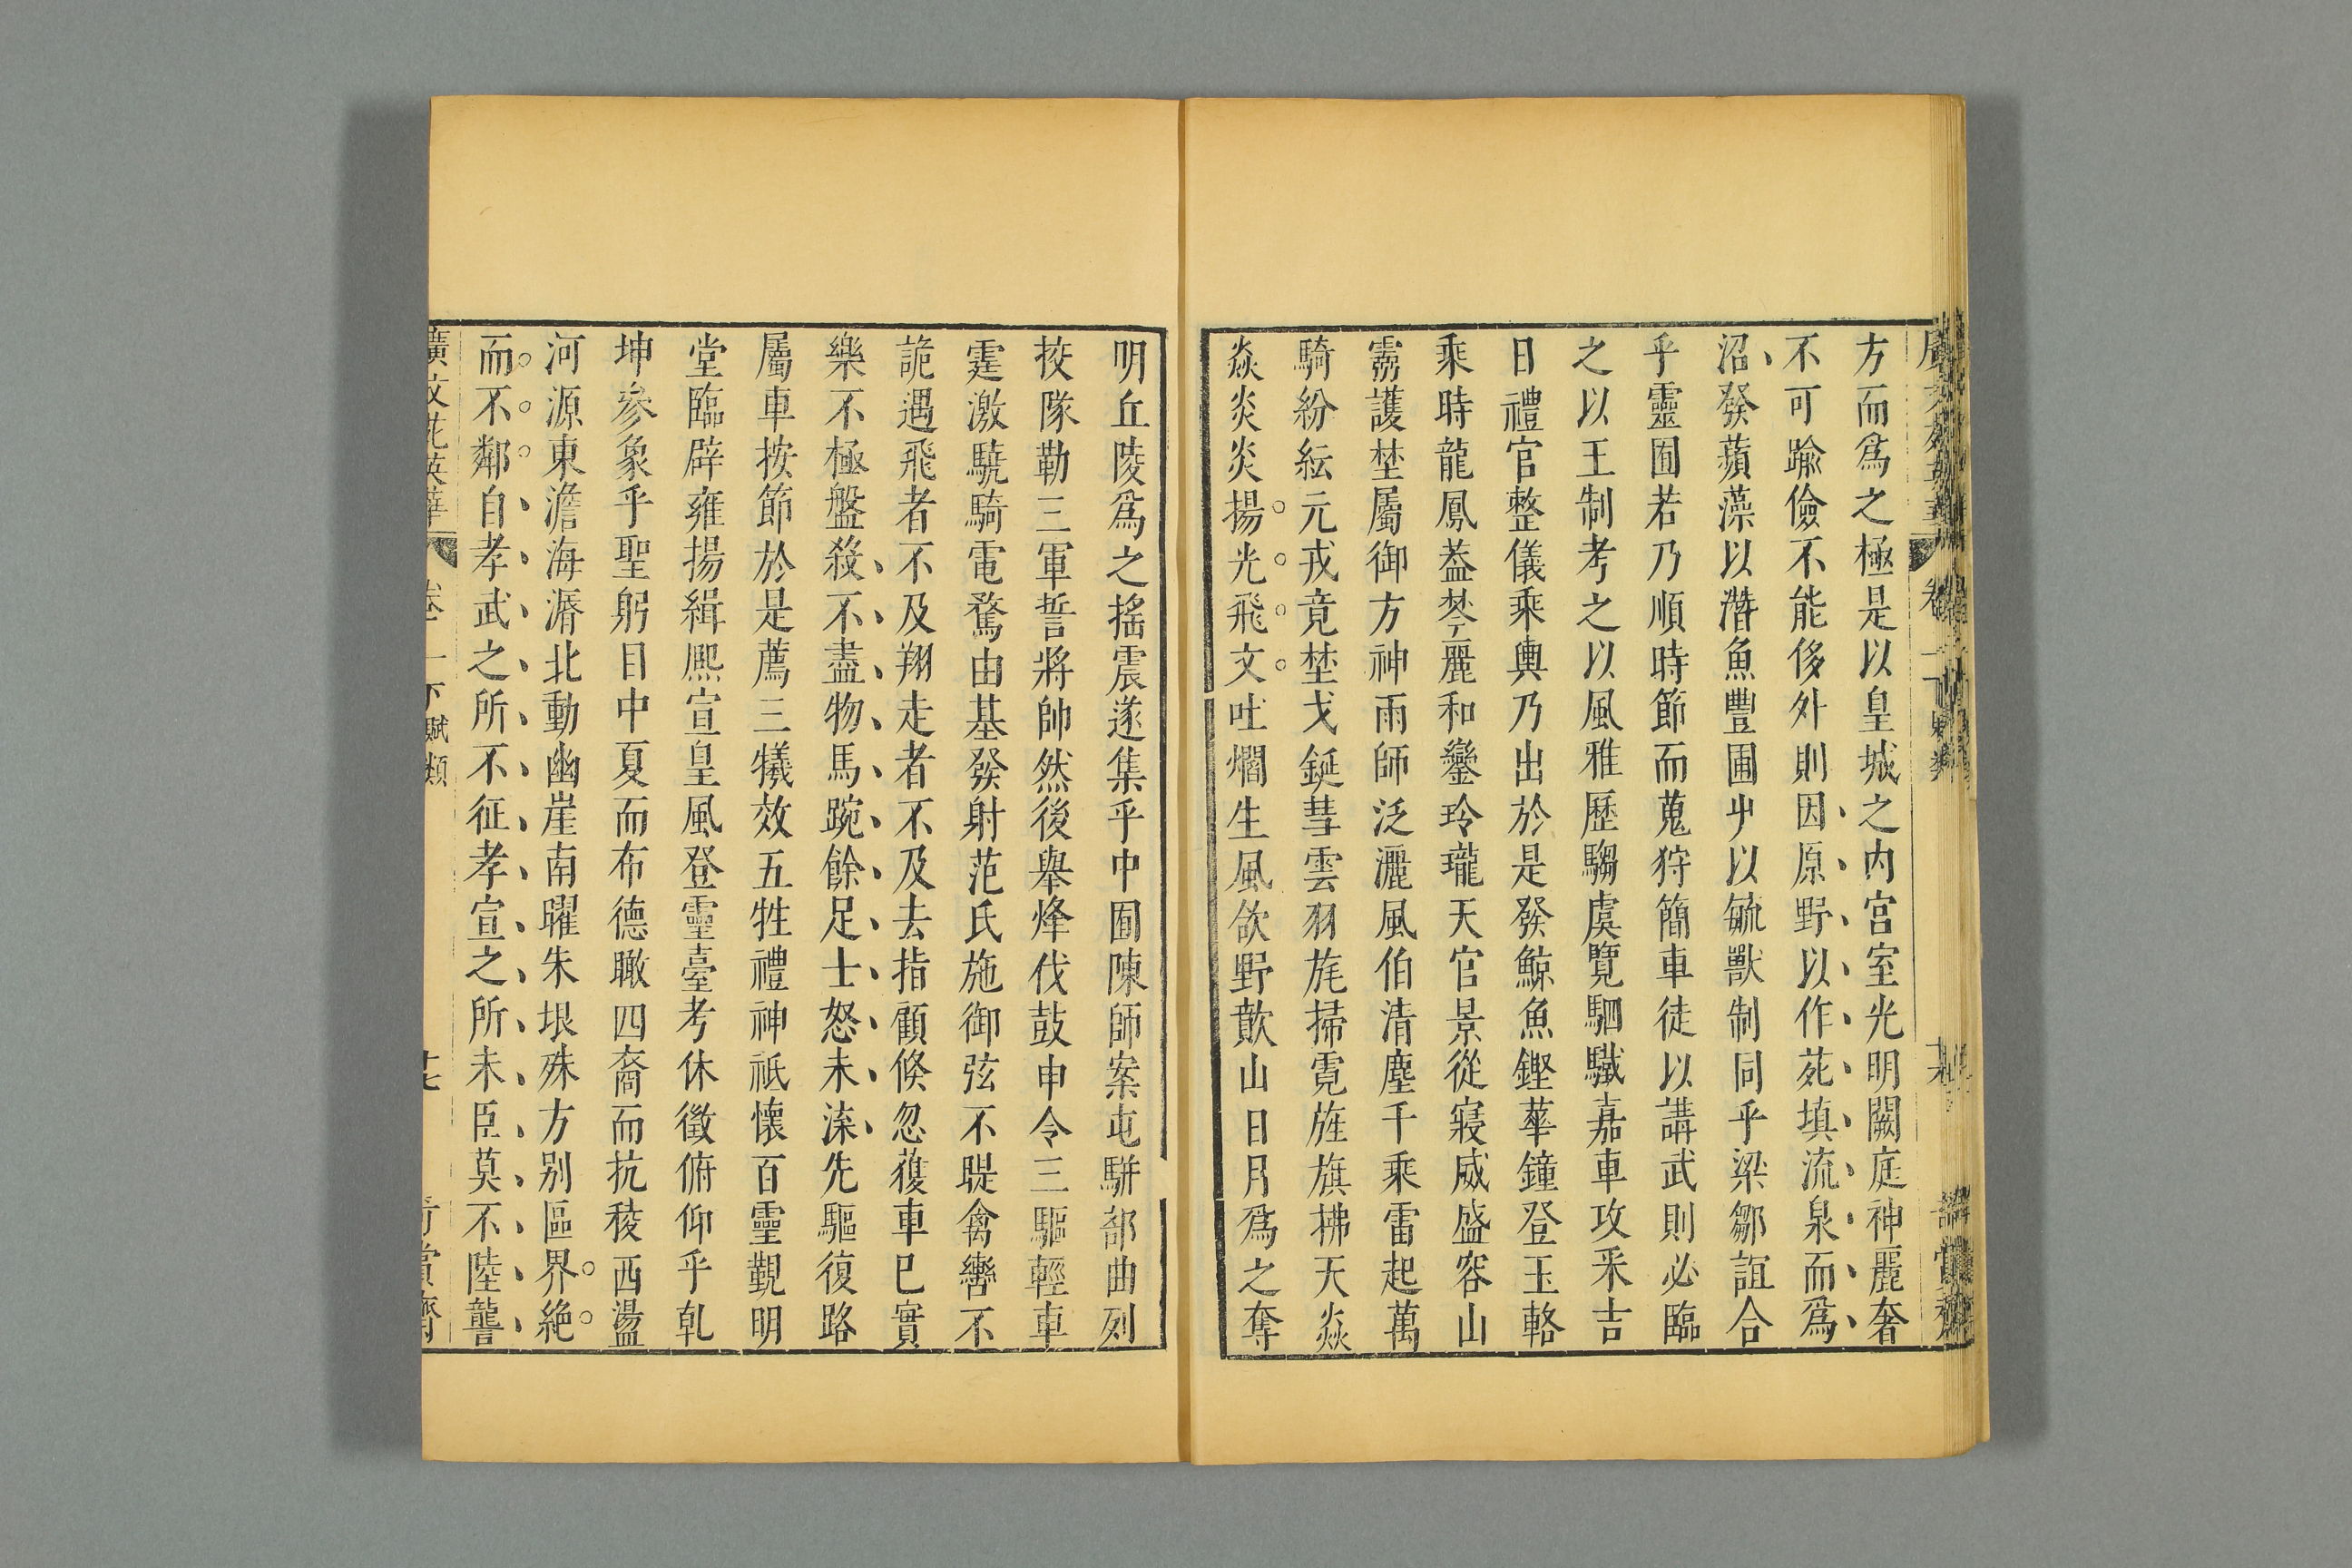 方而爲之極是以皇城之内宫室光明闕庭神麗奢
不可踰儉不能侈外則因原野以作苑填流泉而爲
沼發蘋藻以潛魚豐圃屮以毓獸制同乎梁鄒誼合
乎靈囿若乃順時節而蒐狩簡車徒以講武則必臨
之以王制考之以風雅歷騶虞覽駟驖嘉車攻釆吉
日禮官整儀乘輿乃出於是發鯨魚鏗華鐘登玉輅
乘時龍鳳葢棽麗和鑾玲瓏天官景從寢威盛容山
靈護埜屬御方神雨師泛灑風伯清塵千乘雷起萬
騎紛紜元戎竟埜戈鋋彗雲羽旄掃霓旌旗拂天焱
焱炎炎揚光飛文吐爓生風欲野歕山日月爲之奪
明丘陵爲之搖震遂集乎中囿陳師案屯駢部曲列
挍隊勒三軍誓將帥然後舉烽伐鼓申令三驅輕車
霆激驍騎電騖由基發射范氏施御弦不睼禽轡不
詭遇飛者不及翔走者不及去指顧倏忽蒦車已實
樂不極盤殺不盡物馬踠餘足士怒未渫先驅復路
屬車按節於是薦三犧效五牲禮神祇懷百靈覲明
堂臨辟雍揚緝熙宣皇風登靈臺考休徵俯仰乎乹
坤參象乎聖躬目中夏而布德瞰四裔而抗稜西盪
河源東澹海漘北動幽崖南曜朱垠殊方别區界絶
而不鄰自孝武之所不征孝宣之所未臣莫不陸讋
廣文苑英華 卷一下賦類 十七